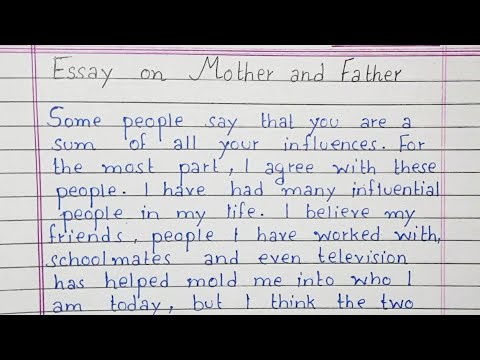 Essay on Mother and Father
Some people say that you are a
sum of all your influences. For
the most part, I agree with these
people. I have had many influential
people in my life. I believe my
friends, people I have worked with,
schoolmates and even television
has helped mold me into who I
am today, but I think the two